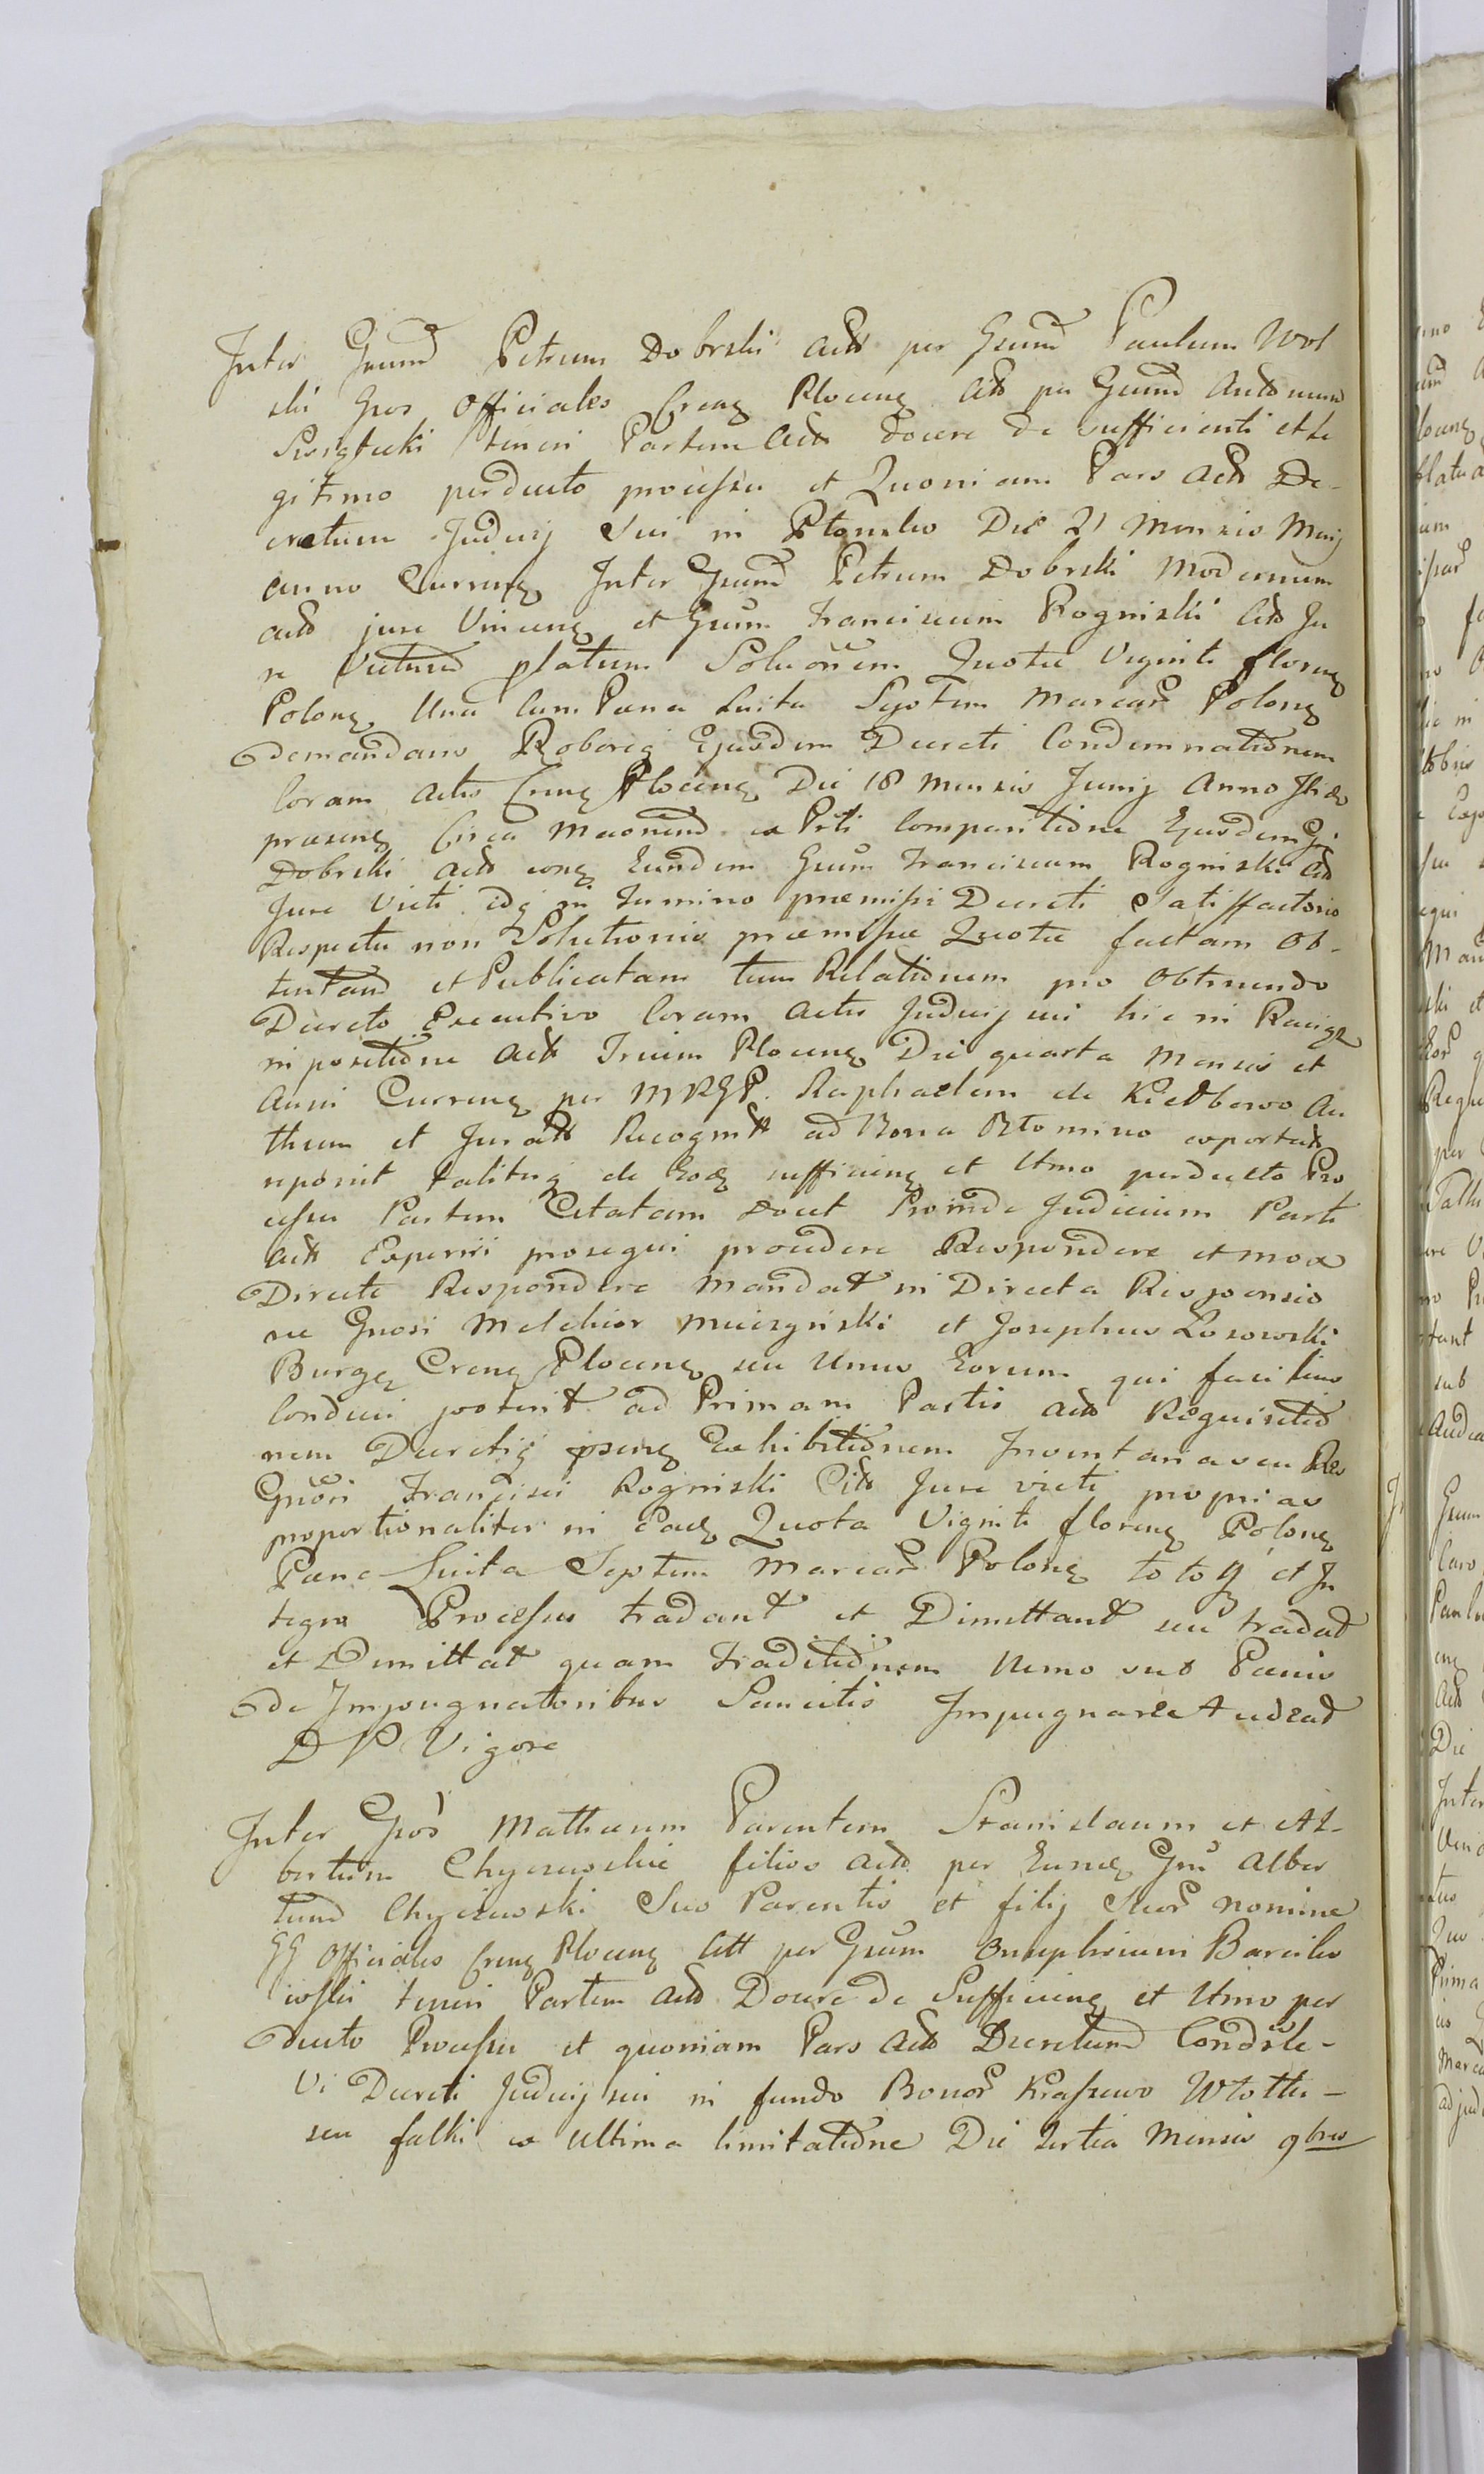 Inter Gnum Petrum Dobrski Act per Gnum Paulum Wol
ski Gnos Officiales Cren Plocen Cit per Gnum Antonum
teneri Partem Act docere de sufficienti et le
gitimo perducto processu et Quoniam Pars Act De-
cretum Judicij Sui in Die 21 Mensis Maij
anno Curren Inter Gnum Petrum Dobrski Modernum
actt jure Vincen et Gnum Franciscum Rogniski Citt Ju
re Victum Solucoem Quotae Viginti floren
Polon Una cum Paena Luita Septem Marcar Polon
demandans Roboris Ejusdem Decreti Condemnationem
Coram Actis Cren Plocen Die 18 Mensis Junij Anno
praesen Circa ex Prti Comparitione Ejusdem Gn
Dobrski Act con Eundem Gnum Franciscum Rogniski Cit
Jure Victi idq in Termino praemissi Decreti Satisfactorio
Respectu non Solutionis praemissae Quotae factam Ob-
tentam et Publicatam tum Relationem pro Obtinendo
Decreto Executivo Coram Actis Judicij sui hic in
in positione Act Trium Plocen Die quarta Mensis et
Anni Curren per MRGP. Raphaelem de Kiełbowo Au
thum et Jurat Recognit ad Bona exportat
reponit taliterq de Eod sufficien et Ltmo perducto Pro
cessu Partem Citatam docet Proinde Judicium Parti
Act Experiri prosequi procedere Respondere et mox
Directe Respondere mandat in Directa Responsio
ne Gnosi Melchior et Josephus Łosowski
Burg Cren Plocen seu Unus Eorum qui facilius
Conduci poterit ad Primam Partis Act Requisitio
nem Decretiq psen Exhibitionem Inventariaseu Res
Gnosi Francisci Rogniski Citt Jure victi proprias
proportionaliter in Ead Quota Viginti floren Polon
Paena Luita Septem Marcar Polon totoq et In
tegro Processu tradant et Dimittant seu tradat
et Dimittat quam traditionem Nemo sub Paenis
de Impugnatoribus Sancitis Impugnare Audeat
D P Vigore
Inter Gnos Mathaeum Parentem Stanislaum et Al-
bertum Chyczewskie filios Act per Eund Gnu Alber
tum Chyczewski Suo Parentis et filij Suor nomine
GG Officiales Cren Plocen Citt per Gnum Onuphrium Barcik
owski teneri Partem Act Docere de Sufficien et Ltmo per
ducto Processu et quoniam Pars Act Decretum Condsle-
Vi Decreti Judicij sui in fundo Bonor Kraszewo Wtottu-
seu falki ex ultima limitatione Die tertia Mensis 9bris